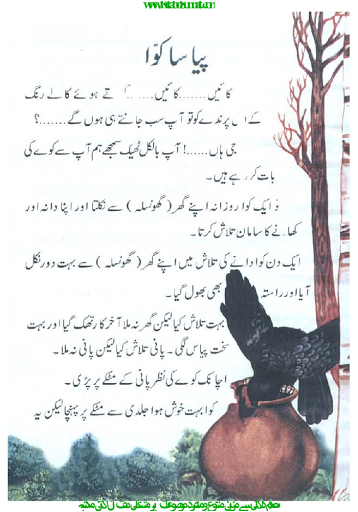 پیاسا کوّا
کائیں.......کائیں....... تے ہوئے کالے رنگ
کے اس پرندے کو تو آپ سب جانتے ہی ہوں گے.......؟
جی ہاں.......! آپ بالکل ٹھیک سمجھے ہم آپ سے کوے کی
بات کر رہے ہیں۔
وہ ایک کوا روزانہ اپنے گھر (گھونسلہ) سے نکلتا اور اپنا دانہ اور
کھانے کا سامان تلاش کرتا۔
ایک دن کوا دانے کی تلاش میں اپنے گھر (گھونسلہ) سے بہت دور نکل
آیا اور راستہ بھی بھول گیا۔
بہت تلاش کیا لیکن گھر نہ ملا آخر کار تھک گیا اور بہت
سخت پیاس لگی۔ پانی تلاش کیا لیکن پانی نہ ملا۔
اچانک کوے کی نظر پانی کے مٹکے پر پڑی۔
کوا بہت خوش ہوا جلدی سے مٹکے پر پہنچا لیکن یہ